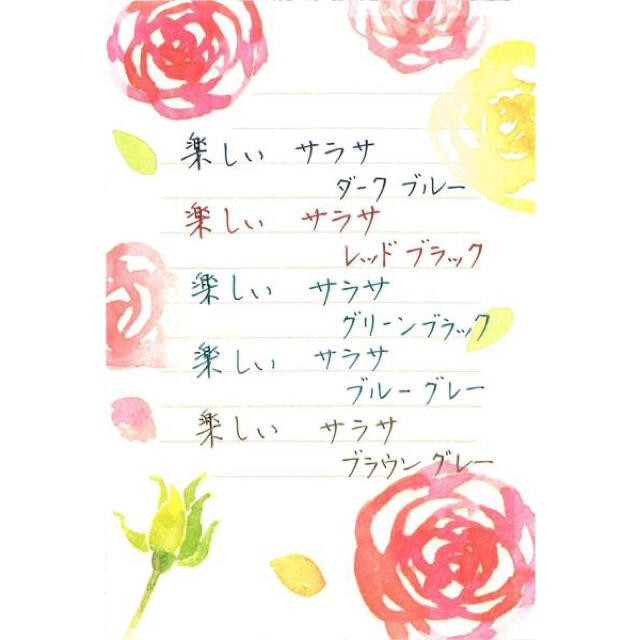 楽しい サラサ
ダーク ブルー
楽しい サラサ
レッド ブラック
楽しい サラサ
グリーンブラック
楽しい サラサ
ブルー グレー
楽しい サラサ
ブラウン グレー